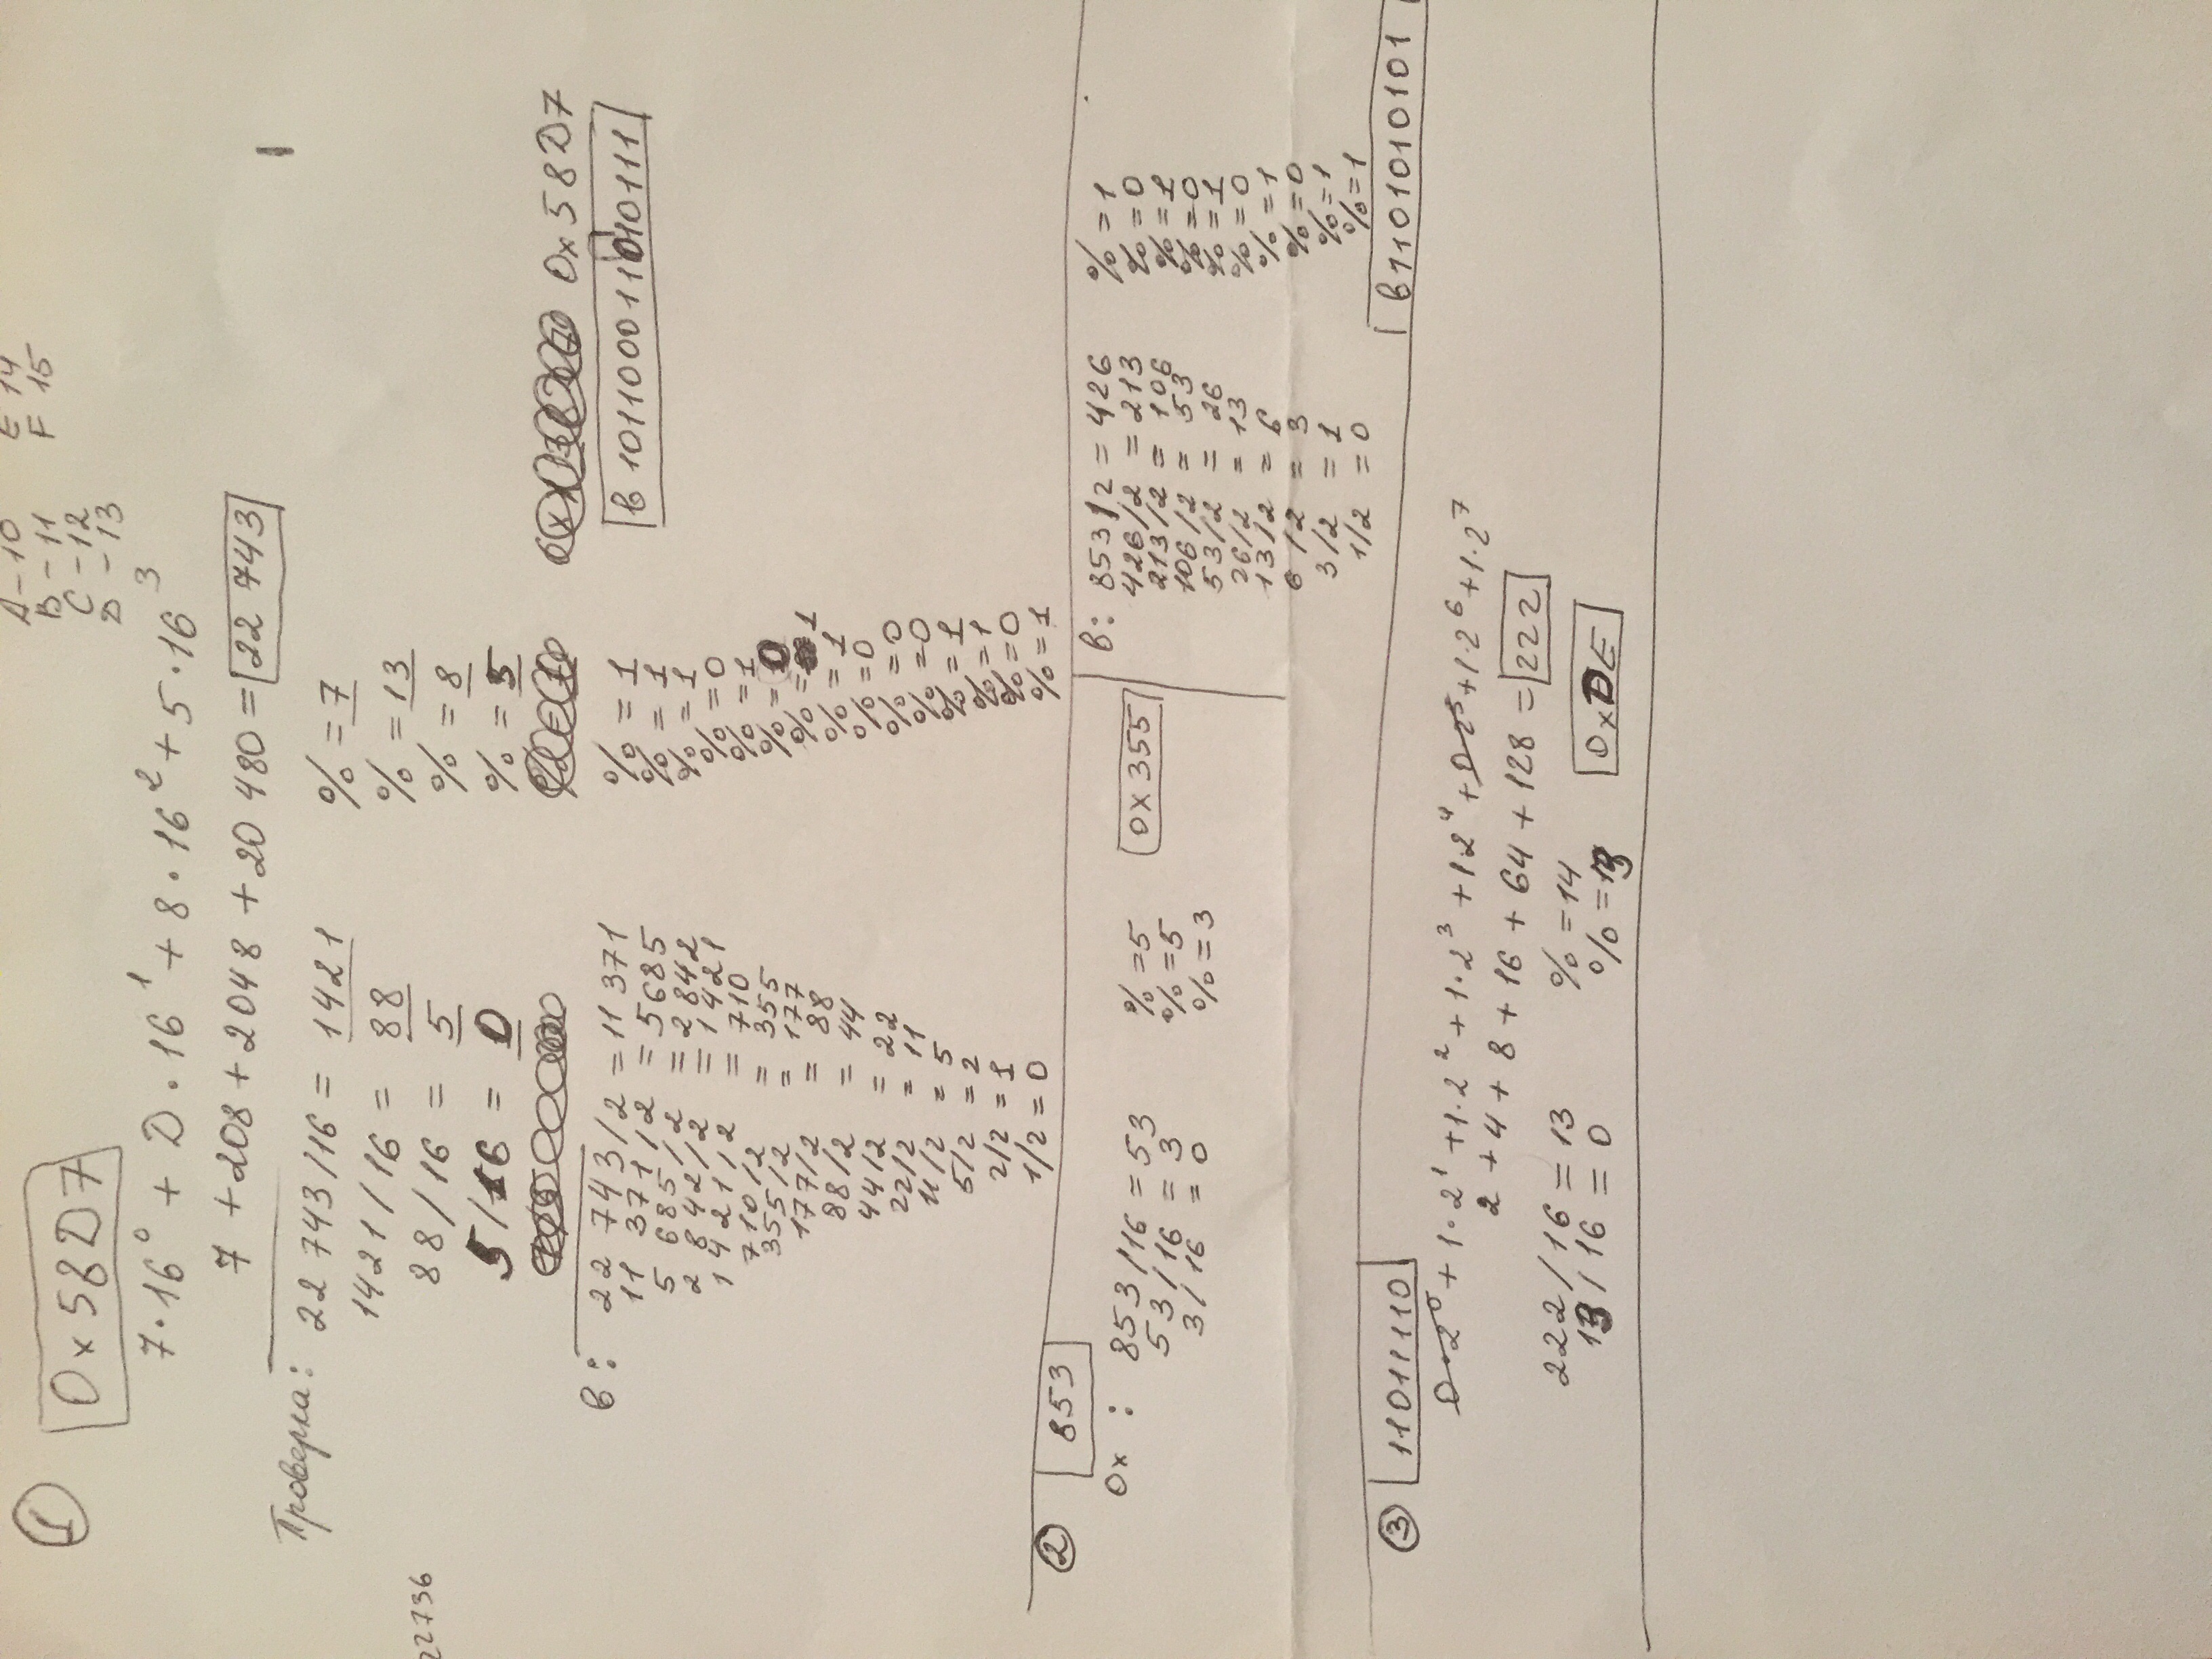 A - 10 E 14
B - 11 F 15
C - 12
D - 13
1
0x58D7
7·16⁰ + D·16¹ + 8·16² + 5·16³
7 + 208 + 2048 + 20 480 = 22 743
Проверка: 22 743/16 = 1421 % = 7
1421/16 = 88 % = 13
22736
88/16 = 5 % = 8
5/16 = 0 % = 5
0x58D7
в: 22 743/2 = 11 371 % = 1
в 101100011010111
11 371/2 = 5685 % = 1
5 685/2 = 2842 % = 1
2 842/2 = 1421 % = 0
1421/2 = 710 % = 1
710/2 = 355 % = 0
355/2 = 177 % = 1
177/2 = 88 % = 1
88/2 = 44 % = 0
44/2 = 22 % = 0
22/2 = 11 % = 0
11/2 = 5 % = 1
5/2 = 2 % = 1
2/2 = 1 % = 0
1/2 = 0 % = 1
2 853
0x : 853/16 = 53 % = 5
53/16 = 3 % = 5
3/16 = 0 % = 3
0x355
в: 853/2 = 426 % = 1
426/2 = 213 % = 0
213/2 = 106 % = 1
106/2 = 53 % = 0
53/2 = 26 % = 1
26/2 = 13 % = 0
13/2 = 6 % = 1
6/2 = 3 % = 0
3/2 = 1 % = 1
1/2 = 0 % = 1
в1101010101
3 11011110
0·2⁰ + 1·2¹ + 1·2² + 1·2³ + 1·2⁴ + 0·2⁵ + 1·2⁶ + 1·2⁷
2 + 4 + 8 + 16 + 64 + 128 = 222
222/16 = 13 % = 14
13/16 = 0 % = 13
0xDE